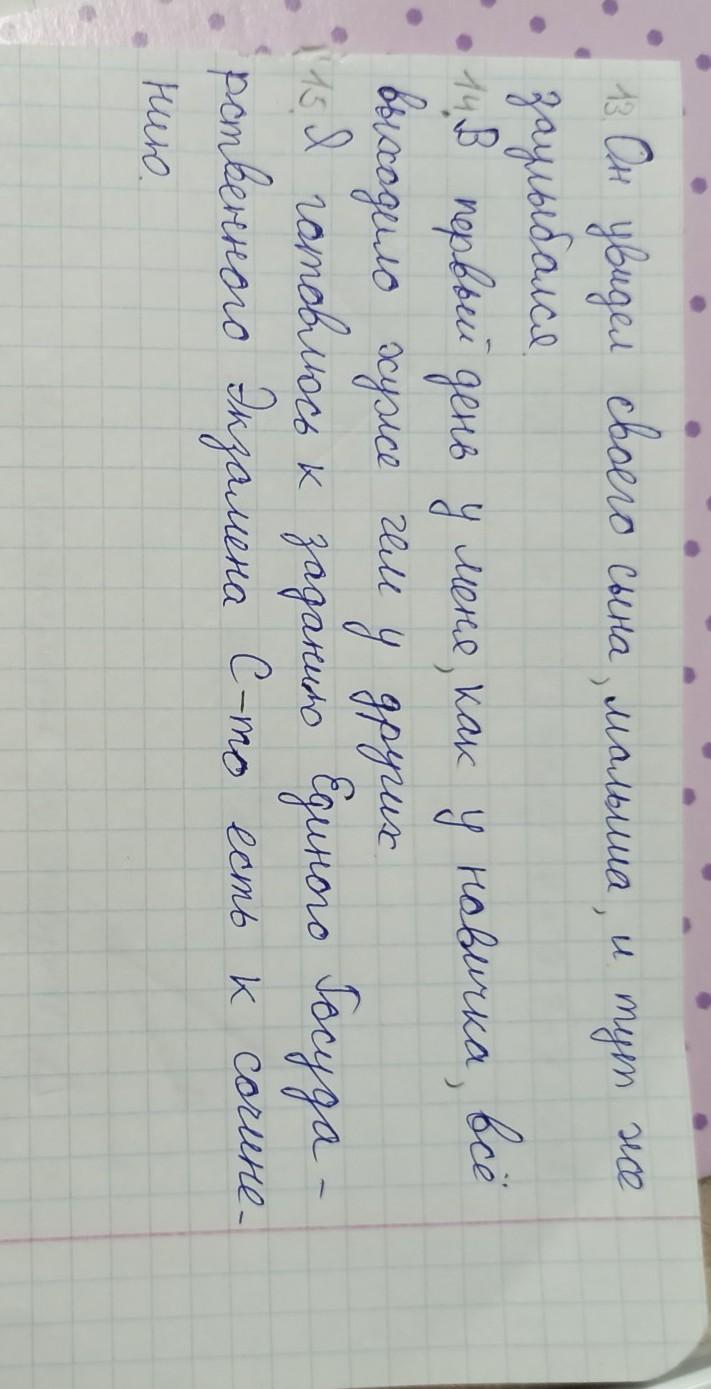 13. Он увидел своего сына, малыша, и тут же
заулыбался.
14. В первый день у меня, как у новичка, всё
выходило хуже чем у других
15. Я готовлюсь к заданию Единого Госуда-
рственного Экзамена С-то есть к сочине-
нию.